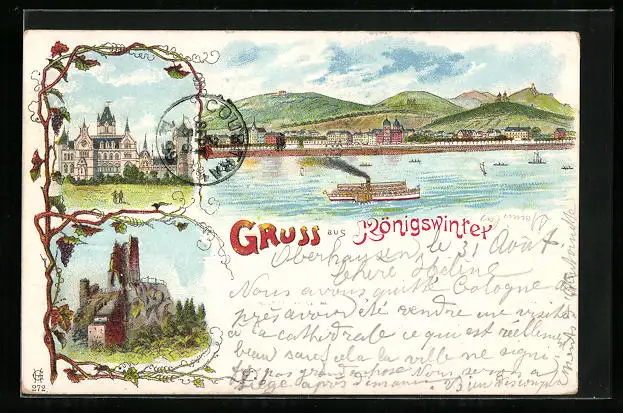 GRUSS aus Königswinter
Oberhausen, le 31 Août
chère Hélène
Nous avons quitté Cologne a
près avoir été rendre une visite
à la cathédrale ce qui est réellement
beau sans cela la ville ne signi
fie pas grand chose Nous serons à
Liège après demain. Bien
272